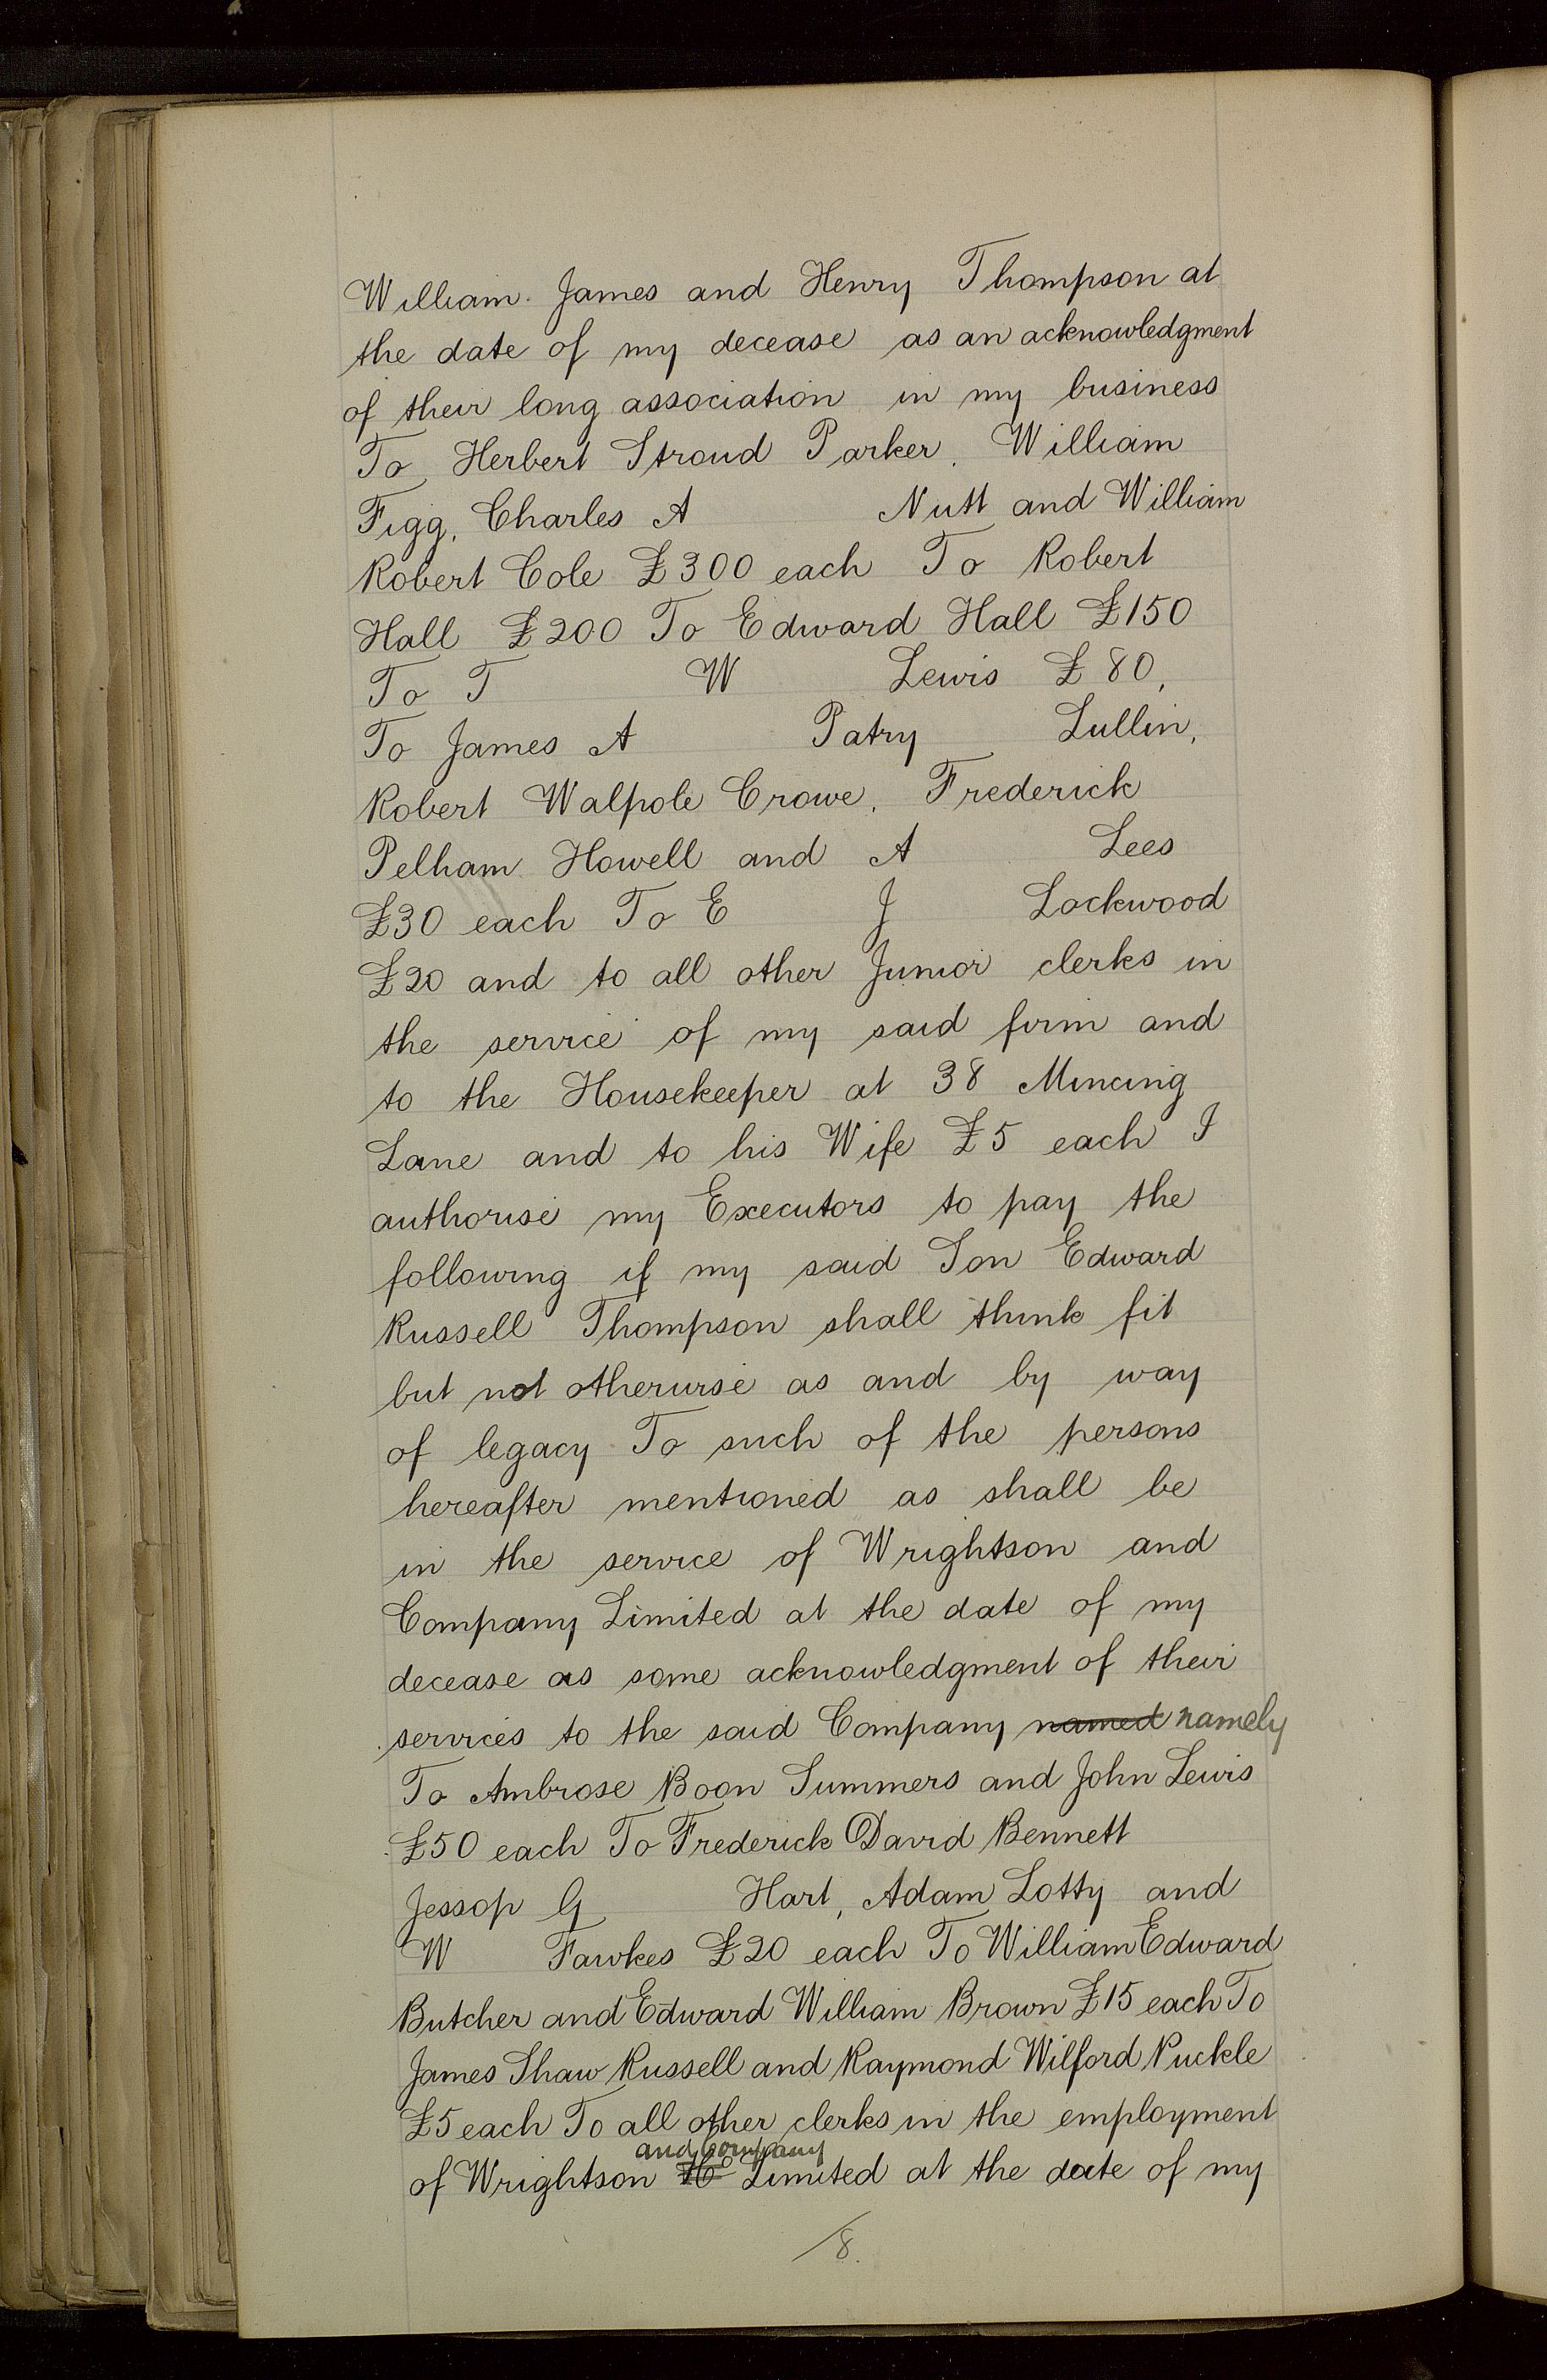 William. James and Henry Thompson at
the date of my decease as an acknowledgment
of their long association in my business
To Herbert Stroud Parker. William
Figg, Charles A Nutt and William
Robert Cole £300 each To Robert
Hall £200 To Edward Hall £150
To T W Lewis £80,
To James A Patry Lullin,
Robert Walpole Crowe, Frederick
Pelham Howell and A Lees
£30 each To E J Lockwood
£20 and to all other Junior clerks in
the service of my said firm and
to the Housekeeper at 38 Mincing
Lane and to his Wife £5 each I
authorise my Executors to pay the
following if my said Son Edward
Russell Thompson shall think fit
but not otherwise as and by way
of legacy To such of the persons
hereafter mentioned as shall be
in the service of Wrightson and
Company Limited at the date of my
decease as some acknowledgment of their
services to the said Company named namely
To Ambrose Boon Summers and John Lewis
£50 each To Frederick David Bennett
Jessop G Hart, Adam Lotty and
W Fawkes £20 each To William Edward
Butcher and Edward William Brown £15 each To
James Shaw Russell and Raymond Wilford Puckle
£5 each To all other clerks in the employment
and Company
of Wrightson Limited at the date of my
8.